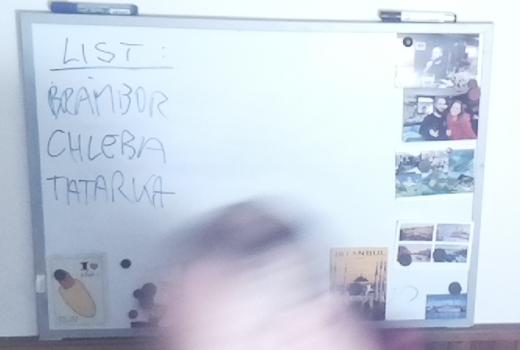 LIST :
BRAMBOR
CHLEBA
TATARKA
I
ISTANBUL